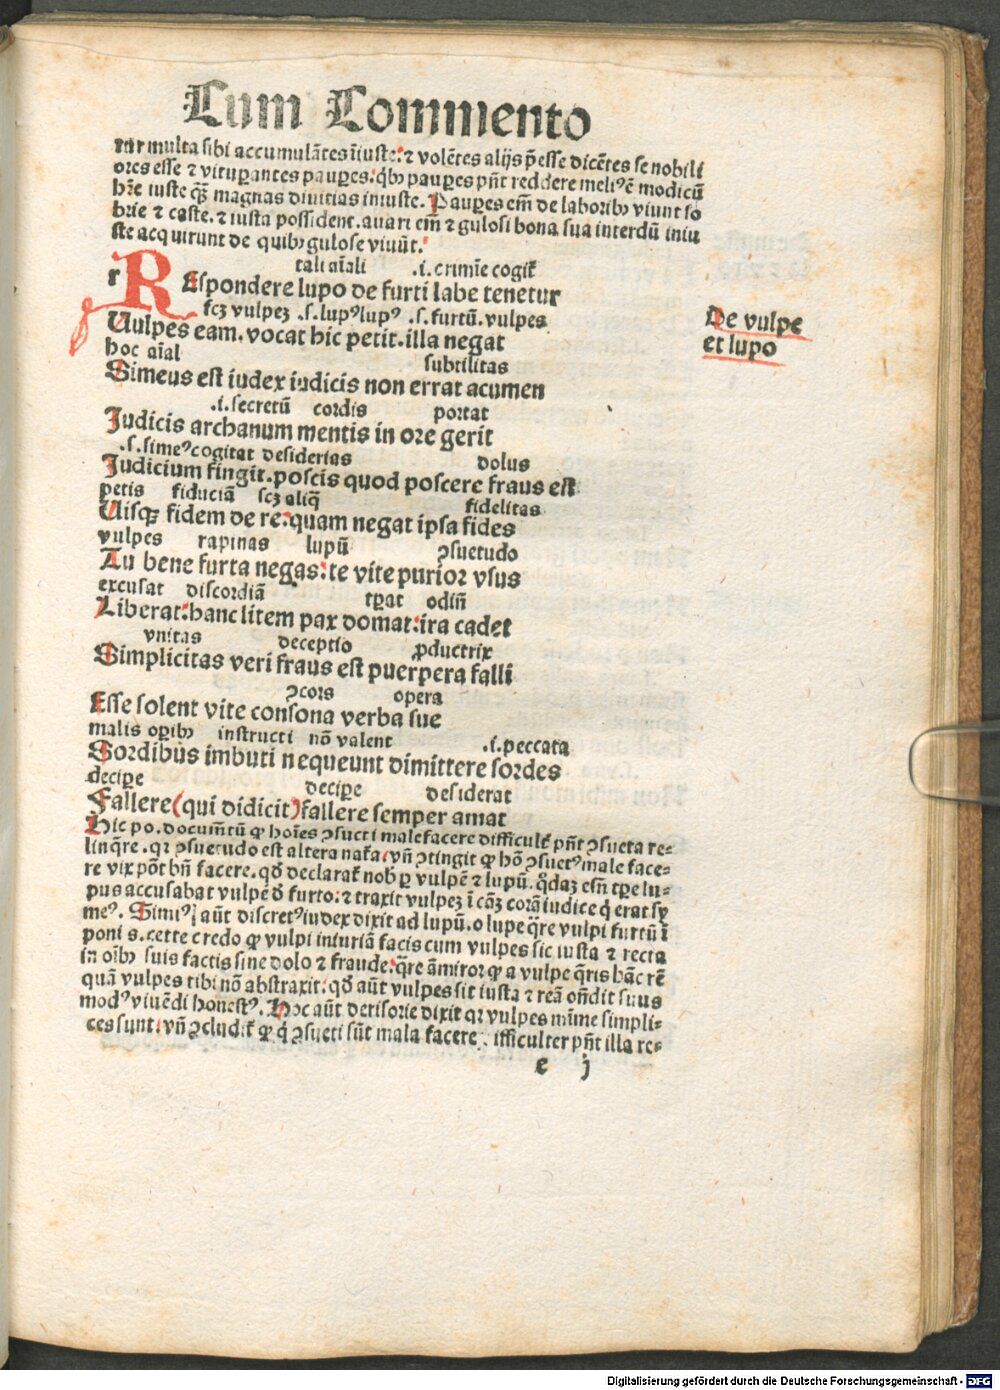 Cum Commento
tur multa sibi accumulātes īiuste: ⁊ volētes alijs p̄esse dicētes se nobili
ores esse ⁊ vituꝑantes pauꝑes. qb᷒ pauꝑes pn̄t reddere meli᷒ ē modicū
hr̄e iuste qȝ magnas diuitias iniuste. Pauꝑes em̄ de laborib᷒ viunt so
brie ⁊ caste. ⁊ iusta possident. auari em̄ ⁊ gulosi bona sua interdū iniu
ste acquirunt de quib᷒ gulose viuūt.
tali aīali .i. crimīe cogit᷑
r REspondere lupo de furti labe tenetur
scȝ vulpeȝ .s. lup᷒ lup᷒ .s. furtū. vulpes
Uulpes eam. vocat hic petit. illa negat
De vulpe
et lupo
hoc aīal subtilitas
Simeus est iudex iudicis non errat acumen
.i. secretū cordis portat
Judicis archanum mentis in ore gerit
.s. sime᷒ cogitat desiderias dolus
Judicium fingit. poscis quod poscere fraus est
petis fiduciā scȝ aliq̄ fidelitas
Uisqȝ fidem de re: quam negat ipsa fides
vulpes rapinas lupū ꝯsuetudo
Tu bene furta negas: te vite purior vsus
excusat discordiā tꝑat odiū
Liberat: hanc litem pax domat: ira cadet
vnitas deceptio ꝓductrix
Simplicitas veri fraus est puerpera falli
ꝯcors opera
Esse solent vite consona verba sue
malis oꝑib᷒ instructi nō valent .i. peccata
Sordibus imbuti nequeunt dimittere sordes
deciꝑe deciꝑe desiderat
Fallere (qui didicit) fallere semper amat
Hic po. documētū ꝙ hoīes ꝯsueti malefacere difficult᷑ pn̄t ꝯsueta re-
linq̄re. qꝛ ꝯsuetudo est altera nat᷑a. vn̄ ꝯtingit ꝙ hō ꝯsuet᷒ male face-
re vix pōt bn̄ facere. qđ declarat᷑ nob᷒ ꝑ vulpē ⁊ lupū. q̄daȝ em̄ tꝑe lu-
pus accusabat vulpē đ furto: ⁊ traxit vulpeȝ ī cāȝ corā iudice q̇ erat sy
me᷒. Simi᷒ aūt discret᷒ iudex dixit ad lupū. o lupe q̄re vulpi furtū ī
poni s. certe credo ꝙ vulpi iniuriā facis cum vulpes sic iusta ⁊ recta
in oīb᷒ suis factis sine dolo ⁊ fraude. q̄re āmiror ꝙ a vulpe q̄ris hāc rē
quā vulpes tibi nō abstraxit. qđ aūt vulpes sit iusta ⁊ rcā on̄dit suus
mod᷒ viuēdi honest᷒. Hoc aūt derisorie dixit qꝛ vulpes mīme simpli-
ces sunt. vn̄ ꝯcludit᷑ ꝙ q̇ ꝯsueti sūt mala facere ifficulter pn̄t illa re-
e j
Digitalisierung gefördert durch die Deutsche Forschungsgemeinschaft - DFG